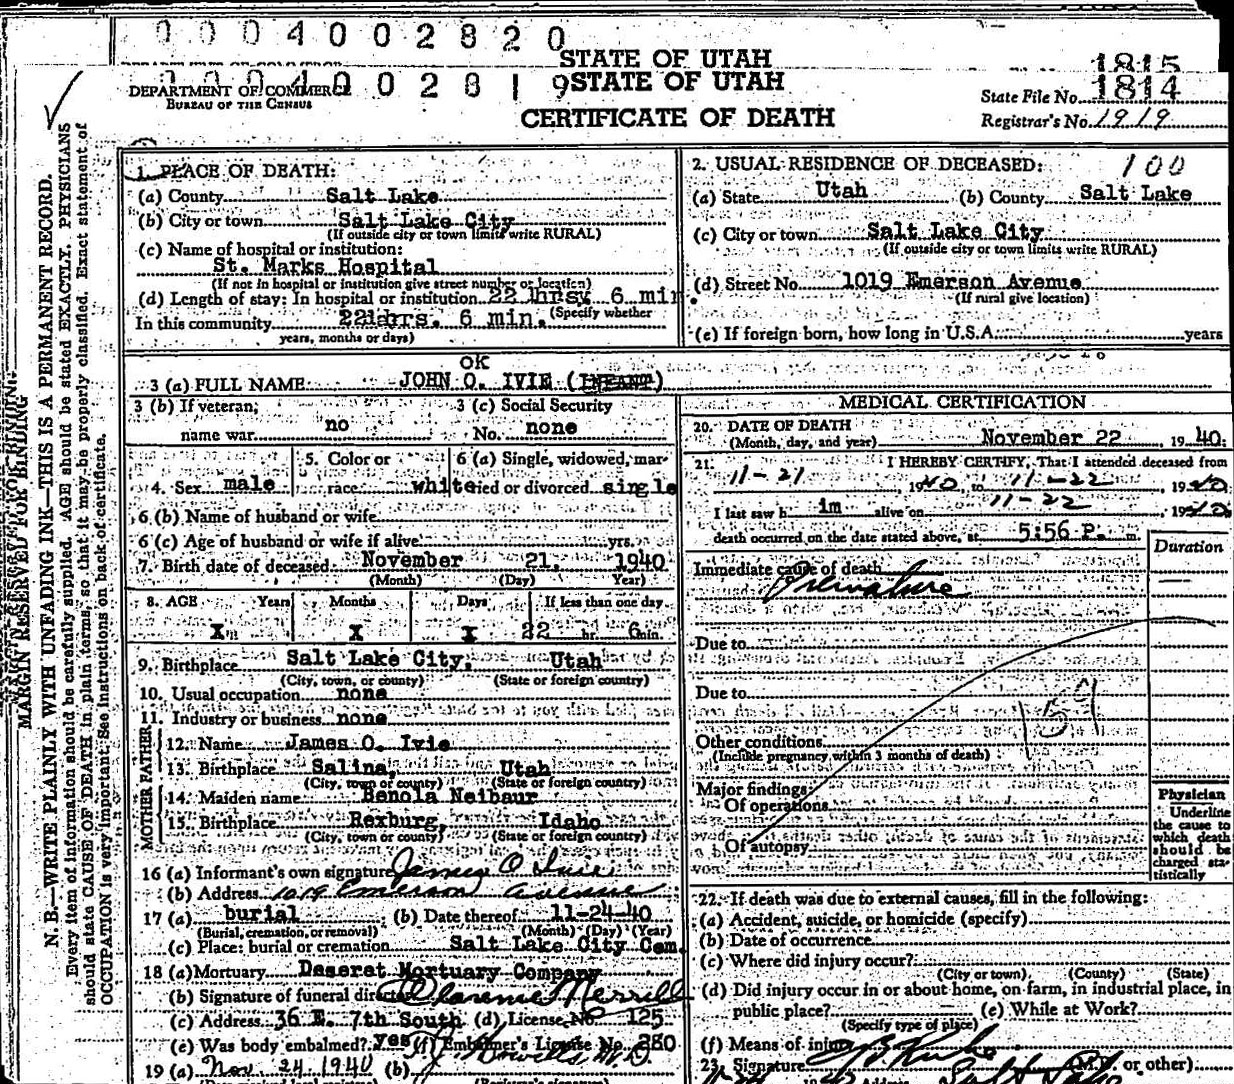 0 0 0 4 0 0 2 8 2 0
STATE OF UTAH
1815
0 0 0 4 0 0 2 8 1 9
STATE OF UTAH
DEPARTMENT OF COMMERCE
BUREAU OF THE CENSUS
CERTIFICATE OF DEATH
State File No. 1814
Registrar's No. 1919
MARGIN RESERVED FOR BINDING
N. B.—WRITE PLAINLY WITH UNFADING INK—THIS IS A PERMANENT RECORD.
Every item of information should be carefully supplied. AGE should be stated EXACTLY. PHYSICIANS
should state CAUSE OF DEATH in plain terms, so that it may be properly classified. Exact statement of
OCCUPATION is very important. See instructions on back of certificate.
1. PLACE OF DEATH:
(a) County Salt Lake
(b) City or town Salt Lake City
(If outside city or town limits write RURAL)
(c) Name of hospital or institution:
St. Marks Hospital
(If not in hospital or institution give street number or location)
(d) Length of stay: In hospital or institution 22 hrs. 6 min.
(Specify whether
In this community 22 hrs. 6 min.
years, months or days)
2. USUAL RESIDENCE OF DECEASED: 100
(a) State Utah (b) County Salt Lake
(c) City or town Salt Lake City
(If outside city or town limits write RURAL)
(d) Street No. 1019 Emerson Avenue
(If rural give location)
(e) If foreign born, how long in U.S.A. years
OK
3 (a) FULL NAME JOHN O. IVIE (INFANT)
3 (b) If veteran, name war no
3 (c) Social Security No. none
4. Sex male
5. Color or race white
6 (a) Single, widowed, married or divorced single
6 (b) Name of husband or wife
6 (c) Age of husband or wife if alive yrs.
7. Birth date of deceased November 21, 1940
(Month) (Day) Year)
8. AGE Years Months Days If less than one day
X X X 22 hr. 6 min.
9. Birthplace Salt Lake City, Utah
(City, town, or county) (State or foreign country)
10. Usual occupation none
11. Industry or business none
FATHER
12. Name James O. Ivie
13. Birthplace Salina, Utah
(City, town or county) (State or foreign country)
MOTHER
14. Maiden name Benola Neibaur
15. Birthplace Rexburg, Idaho
(City, town or county) (State or foreign country)
16 (a) Informant's own signature James O Ivie
(b) Address 1019 Emerson avenue
17 (a) burial (b) Date thereof 11-24-40
(Burial, cremation, or removal) (Month) (Day) (Year)
(c) Place: burial or cremation Salt Lake City Cem.
18 (a) Mortuary Deseret Mortuary Company
(b) Signature of funeral director Clarence Merrill
(c) Address 36 E. 7th South (d) License No. 125
(e) Was body embalmed? yes (f) Embalmer's License No. 280
19 (a) Nov 24 1940 (b)
MEDICAL CERTIFICATION
20. DATE OF DEATH
(Month, day, and year) November 22, 1940.
21. I HEREBY CERTIFY, That I attended deceased from
11-21 1940, to 11-22 1940
I last saw him alive on 11-22, 1940
death occurred on the date stated above, at 5:56 P. m.
Duration
Immediate cause of death
Premature
Due to
Due to
159
Other conditions
(Include pregnancy within 3 months of death)
Major findings:
Of operations
Of autopsy
Physician
Underline
the cause to
which death
should be
charged sta-
tistically
22. If death was due to external causes, fill in the following:
(a) Accident, suicide, or homicide (specify)
(b) Date of occurrence
(c) Where did injury occur?
(City or town) (County) (State)
(d) Did injury occur in or about home, on farm, in industrial place, in
public place? (e) While at Work?
(Specify type of place)
(f) Means of injury
23. Signature (M.D. or other)